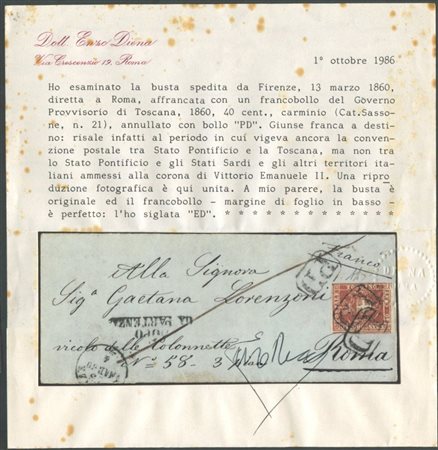 Dott. Enzo Diena
Via Crescenzio 19. Roma
1° ottobre 1986
Ho esaminato la busta spedita da Firenze, 13 marzo 1860,
diretta a Roma, affrancata con un francobollo del Governo
Provvisorio di Toscana, 1860, 40 cent., carminio (Cat.Sasso-
ne, n. 21), annullato con bollo "PD". Giunse franca a desti-
no: risale infatti al periodo in cui vigeva ancora la conven-
zione postale tra Stato Pontificio e la Toscana, ma non tra
lo Stato Pontificio e gli Stati Sardi e gli altri territori ita
liani ammessi alla corona di Vittorio Emanuele II. Una ripro
duzione fotografica è qui unita. A mio parere, la busta è
originale ed il francobollo - margine di foglio in basso -
è perfetto: l'ho siglata "ED". * * * * * * * * * * * * * * *
Franco
Alla Signora
Sigª Gaetana Lorenzoni
DOPO
LA PARTENZA
vicolo delle Colonnette
Nº 58 - 3 piano
Roma